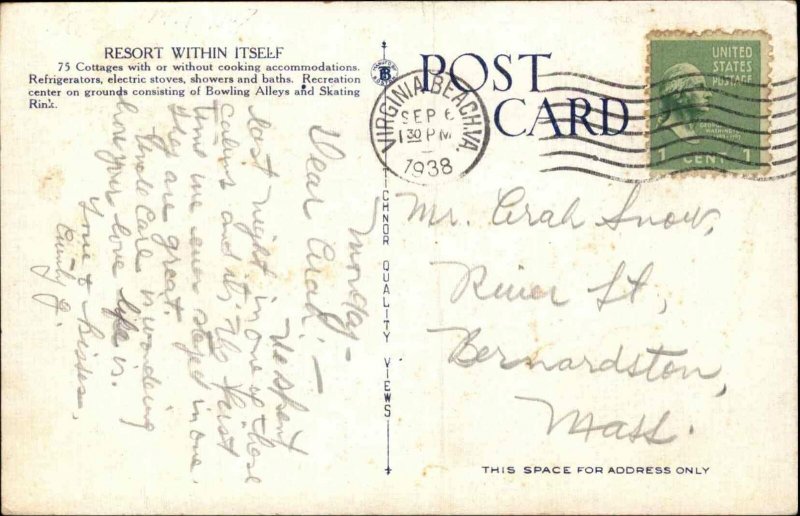 RESORT WITHIN ITSELF
75 Cottages with or without cooking accommodations.
Refrigerators, electric stoves, showers and baths. Recreation
center on grounds consisting of Bowling Alleys and Skating
Rink.
Monday –
Dear Arah! –
We spent
last night in one of these
cabins and it's the first
time we ever stayed in one.
They are great.
Uncle Carl is wondering
how your love life is.
Love & Kisses,
Aunty G.
TICHNOR QUALITY VIEWS
POST
CARD
VIRGINIA BEACH, VA.
SEP 6
1 30 PM
1938
UNITED
STATES
POSTAGE
GEORGE
WASHINGTON
1 CENT 1
Mr. Arah Snow,
River St,
Bernardston,
Mass.
THIS SPACE FOR ADDRESS ONLY